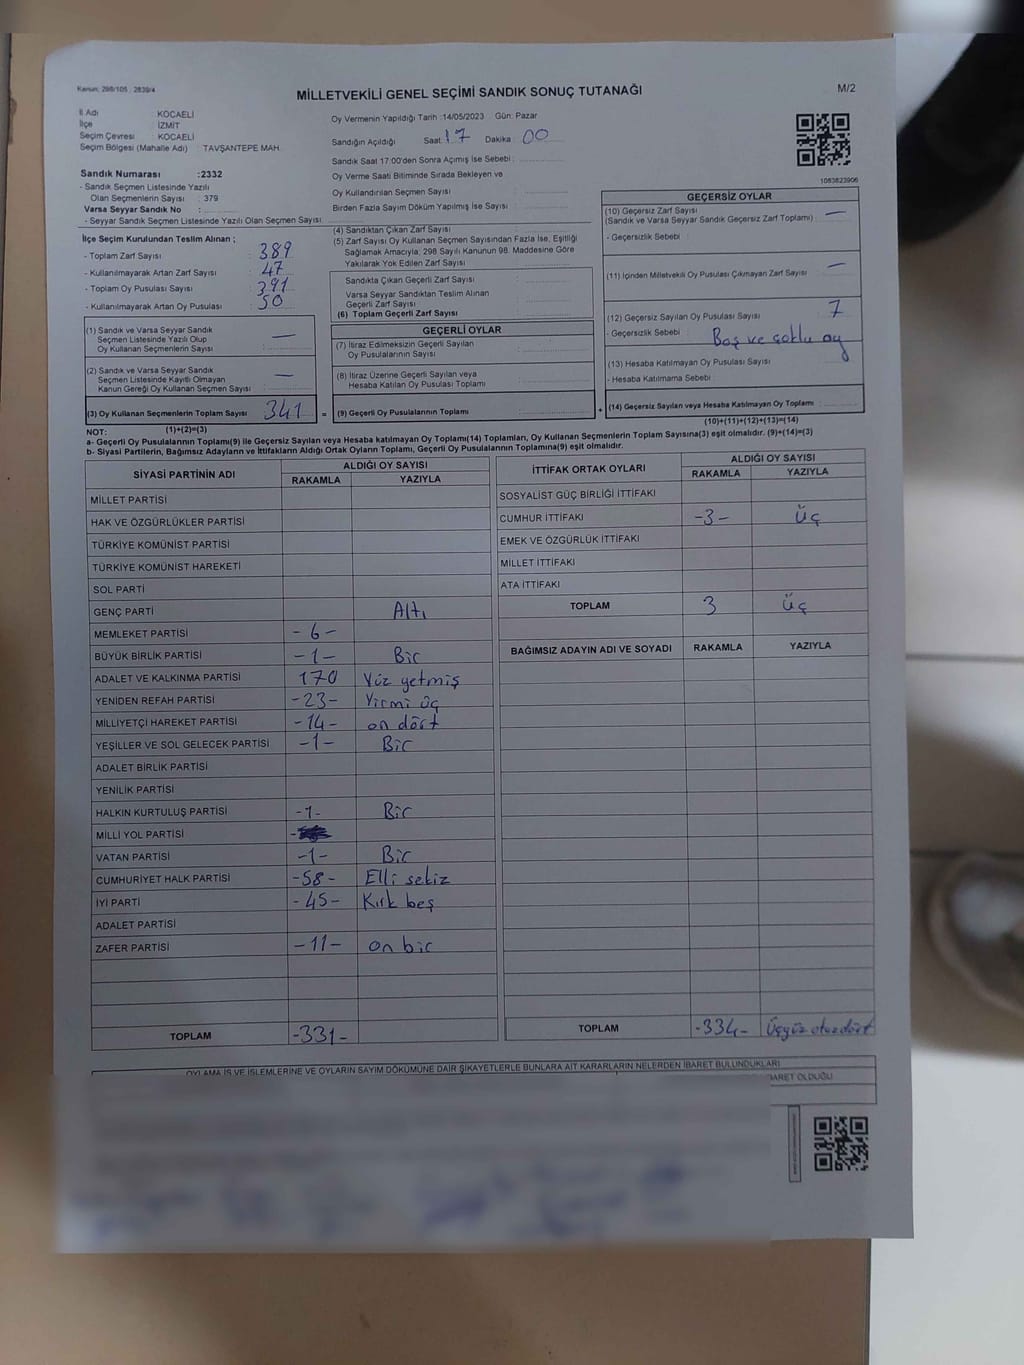 Kanun; 298/105 , 2839/4
MİLLETVEKİLİ GENEL SEÇİMİ SANDIK SONUÇ TUTANAĞI
M/2
İl Adı KOCAELİ
İlçe İZMİT
Seçim Çevresi KOCAELİ
Seçim Bölgesi (Mahalle Adı) : TAVŞANTEPE MAH.
Sandık Numarası :2332
- Sandık Seçmen Listesinde Yazılı
Olan Seçmenlerin Sayısı : 379
Varsa Seyyar Sandık No :
- Seyyar Sandık Seçmen Listesinde Yazılı Olan Seçmen Sayısı :
Oy Vermenin Yapıldığı Tarih :14/05/2023 Gün: Pazar
Sandığın Açıldığı Saat 17 Dakika 00
Sandık Saat 17:00'den Sonra Açımış İse Sebebi :
Oy Verme Saati Bitiminde Sırada Bekleyen ve
Oy Kullandırılan Seçmen Sayısı :
Birden Fazla Sayım Döküm Yapılmış İse Sayısı :
1083823906
İlçe Seçim Kurulundan Teslim Alınan ;
- Toplam Zarf Sayısı : 389
- Kullanılmayarak Artan Zarf Sayısı : 47
- Toplam Oy Pusulası Sayısı : 391
- Kullanılmayarak Artan Oy Pusulası : 50
(1) Sandık ve Varsa Seyyar Sandık
Seçmen Listesinde Yazılı Olup
Oy Kullanan Seçmenlerin Sayısı : —
(2) Sandık ve Varsa Seyyar Sandık
Seçmen Listesinde Kayıtlı Olmayan
Kanun Gereği Oy Kullanan Seçmen Sayısı : —
(3) Oy Kullanan Seçmenlerin Toplam Sayısı 341 =
(1)+(2)=(3)
(4) Sandıktan Çıkan Zarf Sayısı :
(5) Zarf Sayısı Oy Kullanan Seçmen Sayısından Fazla İse, Eşitliği
Sağlamak Amacıyla; 298 Sayılı Kanunun 98. Maddesine Göre
Yakılarak Yok Edilen Zarf Sayısı :
Sandıkta Çıkan Geçerli Zarf Sayısı :
Varsa Seyyar Sandıktan Teslim Alınan
Geçerli Zarf Sayısı :
(6) Toplam Geçerli Zarf Sayısı :
GEÇERLİ OYLAR
(7) İtiraz Edilmeksizin Geçerli Sayılan
Oy Pusulalarının Sayısı :
(8) İtiraz Üzerine Geçerli Sayılan veya
Hesaba Katılan Oy Pusulası Toplamı :
(9) Geçerli Oy Pusulalarının Toplamı : +
GEÇERSİZ OYLAR
(10) Geçersiz Zarf Sayısı
(Sandık ve Varsa Seyyar Sandık Geçersiz Zarf Toplamı) : —
- Geçersizlik Sebebi :
(11) İçinden Milletvekili Oy Pusulası Çıkmayan Zarf Sayısı : —
(12) Geçersiz Sayılan Oy Pusulası Sayısı : 7
- Geçersizlik Sebebi : Boş ve çoklu oy
(13) Hesaba Katılmayan Oy Pusulası Sayısı :
- Hesaba Katılmama Sebebi :
(14) Geçersiz Sayılan veya Hesaba Katılmayan Oy Toplamı :
(10)+(11)+(12)+(13)=(14)
NOT:
a- Geçerli Oy Pusulalarının Toplamı(9) ile Geçersiz Sayılan veya Hesaba katılmayan Oy Toplamı(14) Toplamları, Oy Kullanan Seçmenlerin Toplam Sayısına(3) eşit olmalıdır. (9)+(14)=(3)
b- Siyasi Partilerin, Bağımsız Adayların ve İttifakların Aldığı Ortak Oyların Toplamı, Geçerli Oy Pusulalarının Toplamına(9) eşit olmalıdır.
SİYASİ PARTİNİN ADI ALDIĞI OY SAYISI
RAKAMLA YAZIYLA
MİLLET PARTİSİ
HAK VE ÖZGÜRLÜKLER PARTİSİ
TÜRKİYE KOMÜNİST PARTİSİ
TÜRKİYE KOMÜNİST HAREKETİ
SOL PARTİ
GENÇ PARTİ Altı
MEMLEKET PARTİSİ -6-
BÜYÜK BİRLİK PARTİSİ -1- Bir
ADALET VE KALKINMA PARTİSİ 170 Yüz yetmiş
YENİDEN REFAH PARTİSİ -23- Yirmi üç
MİLLİYETÇİ HAREKET PARTİSİ -14- on dört
YEŞİLLER VE SOL GELECEK PARTİSİ -1- Bir
ADALET BİRLİK PARTİSİ
YENİLİK PARTİSİ
HALKIN KURTULUŞ PARTİSİ -1- Bir
MİLLİ YOL PARTİSİ
VATAN PARTİSİ -1- Bir
CUMHURİYET HALK PARTİSİ -58- Elli sekiz
İYİ PARTİ -45- Kırk beş
ADALET PARTİSİ
ZAFER PARTİSİ -11- on bir
TOPLAM -331-
İTTİFAK ORTAK OYLARI ALDIĞI OY SAYISI
RAKAMLA YAZIYLA
SOSYALİST GÜÇ BİRLİĞİ İTTİFAKI
CUMHUR İTTİFAKI -3- Üç
EMEK VE ÖZGÜRLÜK İTTİFAKI
MİLLET İTTİFAKI
ATA İTTİFAKI
TOPLAM 3 Üç
BAĞIMSIZ ADAYIN ADI VE SOYADI RAKAMLA YAZIYLA
TOPLAM -334- Üçyüz otuzdört
OYLAMA İŞ VE İŞLEMLERİNE VE OYLARIN SAYIM DÖKÜMÜNE DAİR ŞİKAYETLERLE BUNLARA AİT KARARLARIN NELERDEN İBARET BULUNDUKLARI
BARET OLDUĞU